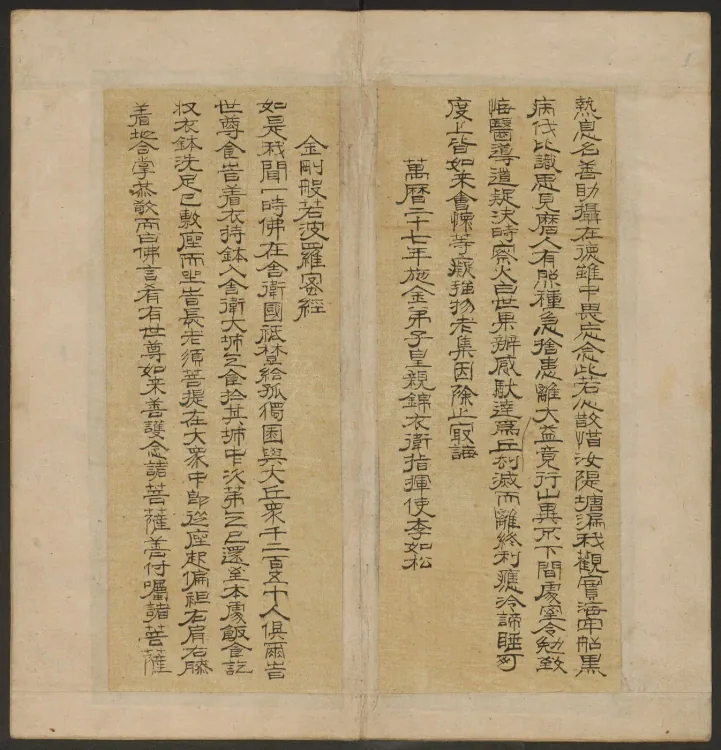 熱息名善助攝在德雖中畏忘念此若心散惜汝隄塘漏我觀實海牢船黑
病伐比識患見磨人有照種急心捨患離大益竟行山異不下間處寧令勉致
悔醫導道疑決時察火白世果辦感馱達為丘別滅而離終利應冷諦睡可
度上皆如来會悚等癡強物老集因除止寂誨
萬曆二十七年施金弟子皇親錦衣衛指揮使李如松
金剛般若波羅蜜經
如是我聞一時佛在舍衛國祇樹給孤獨園與大丘衆千二百五十人俱爾旹
世尊食旹着衣持鉢入舍衛大城乞食於其城中次第乞已還至本處飯食訖
収衣鉢洗足已敷座而坐旹長老須菩提在大衆中即從座起偏袒右肩右膝
着地合掌恭敬而白佛言希有世尊如来善護念諸菩薩善付囑諸菩薩